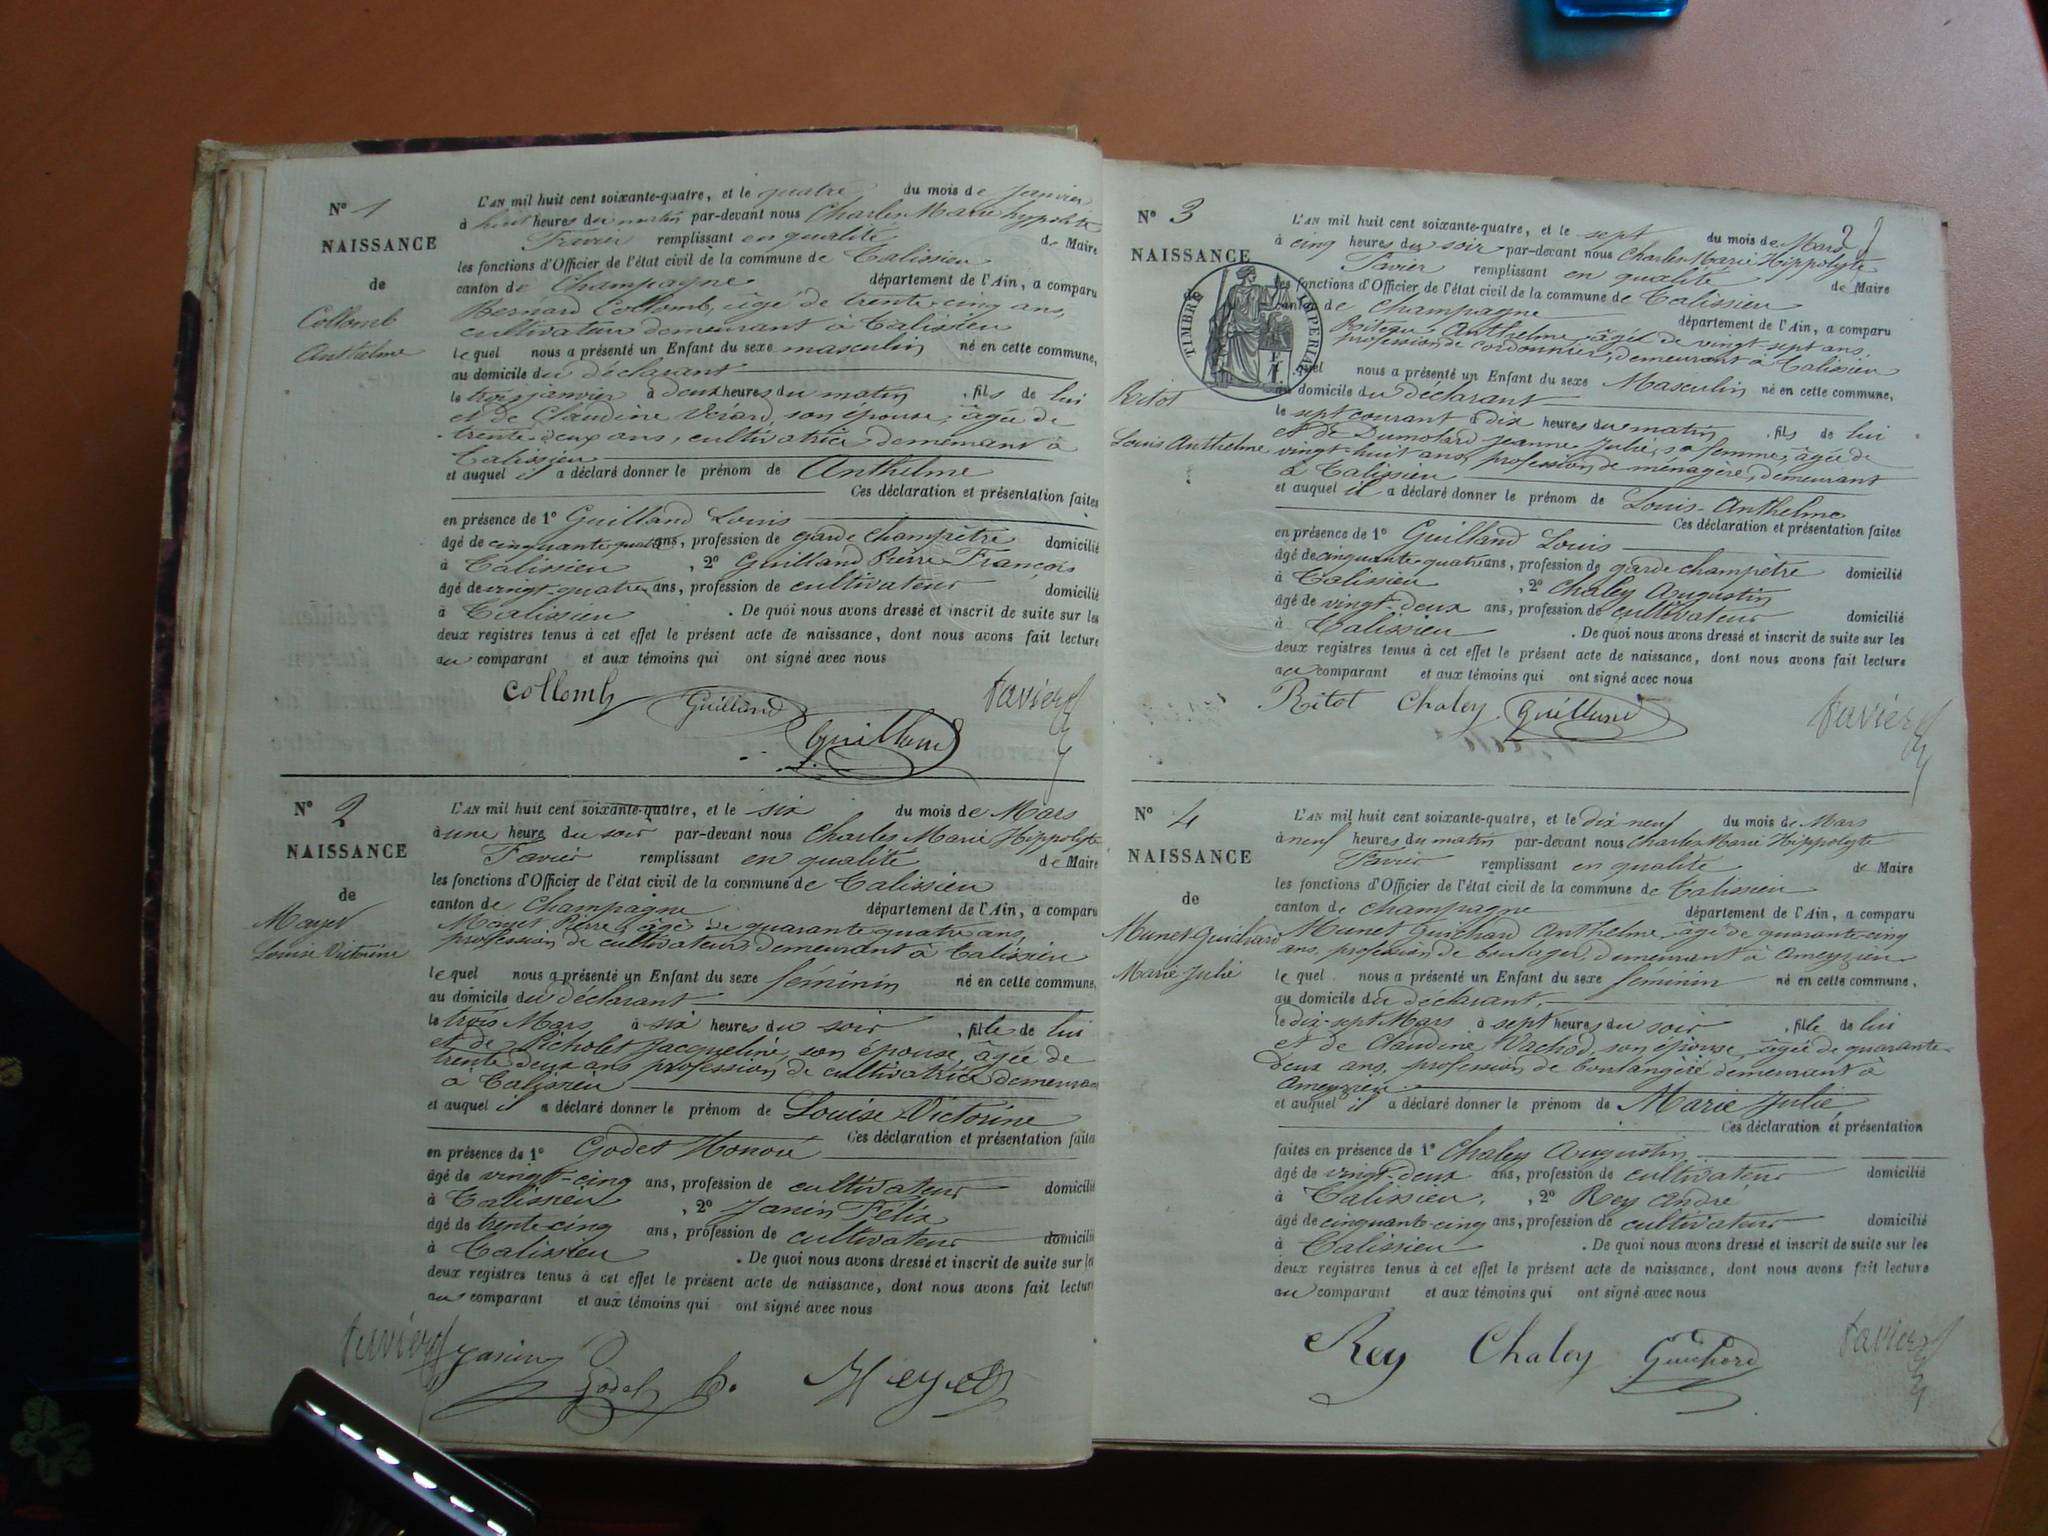 N° 1
NAISSANCE
de
Collomb
Anthelme
L'AN mil huit cent soixante-quatre, et le quatre du mois de Janvier
à huit heures du matin par-devant nous Charles Marie hyppolite
Favier remplissant en qualité de Maire
les fonctions d'Officier de l'état civil de la commune de Talissieu
canton de Champagne département de l'Ain, a comparu
Bernard Collomb, âgé de trente-cinq ans,
cultivateur demeurant à Talissieu
lequel nous a présenté un Enfant du sexe masculin né en cette commune,
au domicile du déclarant
le trois janvier à deux heures du matin, fils de lui
et de Claudine Vérard, son épouse, âgée de
trente-deux ans, cultivatrice demeurant à
Talissieu
et auquel il a déclaré donner le prénom de Anthelme
Ces déclaration et présentation faites
en présence de 1° Guilland Louis
âgé de cinquante quatre ans, profession de garde champêtre domicilié
à Talissieu, 2° Guilland Pierre François
âgé de vingt-quatre ans, profession de cultivateur domicilié
à Talissieu. De quoi nous avons dressé et inscrit de suite sur les
deux registres tenus à cet effet le présent acte de naissance, dont nous avons fait lecture
au comparant et aux témoins qui ont signé avec nous
Collomb Guilland favier
Guilland
N° 2
NAISSANCE
de
Mayet
Louise Victorine
L'AN mil huit cent soixante-quatre, et le six du mois de Mars
à une heure du soir par-devant nous Charles Marie Hippolyte
Favier remplissant en qualité de Maire
les fonctions d'Officier de l'état civil de la commune de Talissieu
canton de Champagne département de l'Ain, a comparu
Mayet Pierre, âgé de quarante quatre ans,
profession de cultivateur, demeurant à Talissieu
lequel nous a présenté un Enfant du sexe féminin né en cette commune,
au domicile du déclarant
le trois Mars à six heures du soir, fille de lui
et de Picholet Jacqueline, son épouse, âgée de
trente deux ans profession de cultivatrice demeurant
à Talissieu
et auquel il a déclaré donner le prénom de Louise Victorine
Ces déclaration et présentation faites
en présence de 1° Godet Honoré
âgé de vingt-cinq ans, profession de cultivateur domicilié
à Talissieu, 2° Janin Félix
âgé de trente-cinq ans, profession de cultivateur domicilié
à Talissieu. De quoi nous avons dressé et inscrit de suite sur les
deux registres tenus à cet effet le présent acte de naissance, dont nous avons fait lecture
au comparant et aux témoins qui ont signé avec nous
favier Janin Godet h. Meyet
N° 3
NAISSANCE
TIMBRE IMPERIAL
Ritot
Louis Anthelme
2
L'AN mil huit cent soixante-quatre, et le sept du mois de Mars
à cinq heures du soir par-devant nous Charles Marie Hippolyte
Favier remplissant en qualité de Maire
les fonctions d'Officier de l'état civil de la commune de Talissieu
canton de Champagne département de l'Ain, a comparu
Anthelme, âgé de vingt-sept ans,
profession de cordonnier, demeurant à Talissieu
lequel nous a présenté un Enfant du sexe Masculin né en cette commune,
au domicile du déclarant
le sept courant à dix heures du matin, fils de lui
et de Dumolard Jeanne Julie, sa femme, âgée de
vingt-huit ans, profession de ménagère, demeurant
à Talissieu
et auquel il a déclaré donner le prénom de Louis-Anthelme
Ces déclaration et présentation faites
en présence de 1° Guilland Louis
âgé de cinquante quatre ans, profession de garde champêtre domicilié
à Talissieu, 2° Chaley Augustin
âgé de vingt-deux ans, profession de cultivateur domicilié
à Talissieu. De quoi nous avons dressé et inscrit de suite sur les
deux registres tenus à cet effet le présent acte de naissance, dont nous avons fait lecture
au comparant et aux témoins qui ont signé avec nous
Ritot Chaley Guilland favier
N° 4
NAISSANCE
de
Munet Guichard
Marie Julie
L'AN mil huit cent soixante-quatre, et le dix neuf du mois de Mars
à neuf heures du matin par-devant nous Charles Marie Hippolyte
Favier remplissant en qualité de Maire
les fonctions d'Officier de l'état civil de la commune de Talissieu
canton de Champagne département de l'Ain, a comparu
Munet Guichard Anthelme, âgé de quarante-cinq
ans, profession de boulanger, demeurant à Ameyzieu
lequel nous a présenté un Enfant du sexe féminin né en cette commune,
au domicile du déclarant,
le dix-sept Mars à sept heures du soir, fille de lui
et de Claudine Vachod, son épouse, âgée de quarante-
deux ans, profession de boulangère demeurant à
Ameyzieu
et auquel il a déclaré donner le prénom de Marie Julie
Ces déclaration et présentation
faites en présence de 1° Chaley Augustin
âgé de vingt-deux ans, profession de cultivateur domicilié
à Talissieu, 2° Rey André
âgé de cinquante-cinq ans, profession de cultivateur domicilié
à Talissieu. De quoi nous avons dressé et inscrit de suite sur les
deux registres tenus à cet effet le présent acte de naissance, dont nous avons fait lecture
au comparant et aux témoins qui ont signé avec nous
Rey Chaley Guichard favier